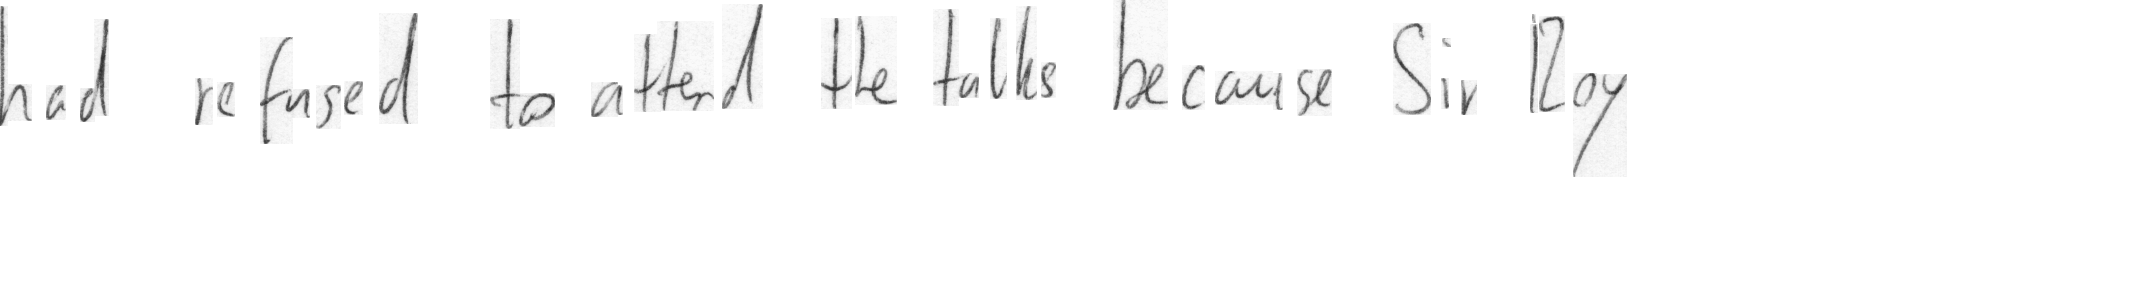 had refused to attend the talks because Sir Roy